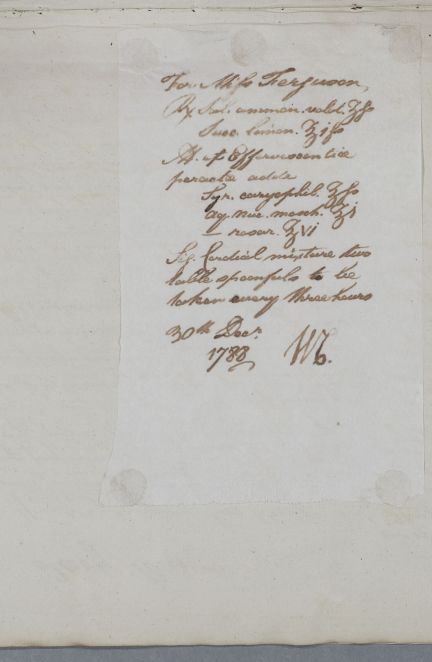 For Miss Ferguson,
℞ Sal. ammon. volat. ʒß
Succ. limon. ℥iß
M. et Effervescentia
peracta adde
Syr. caryophil. ℥ß
aq. nuc. mosch. ℥i
— rosar. ℥vi
Sig. Cordial mixture two
table spoonfuls to be
taken every three hours
30th Decr.
1788